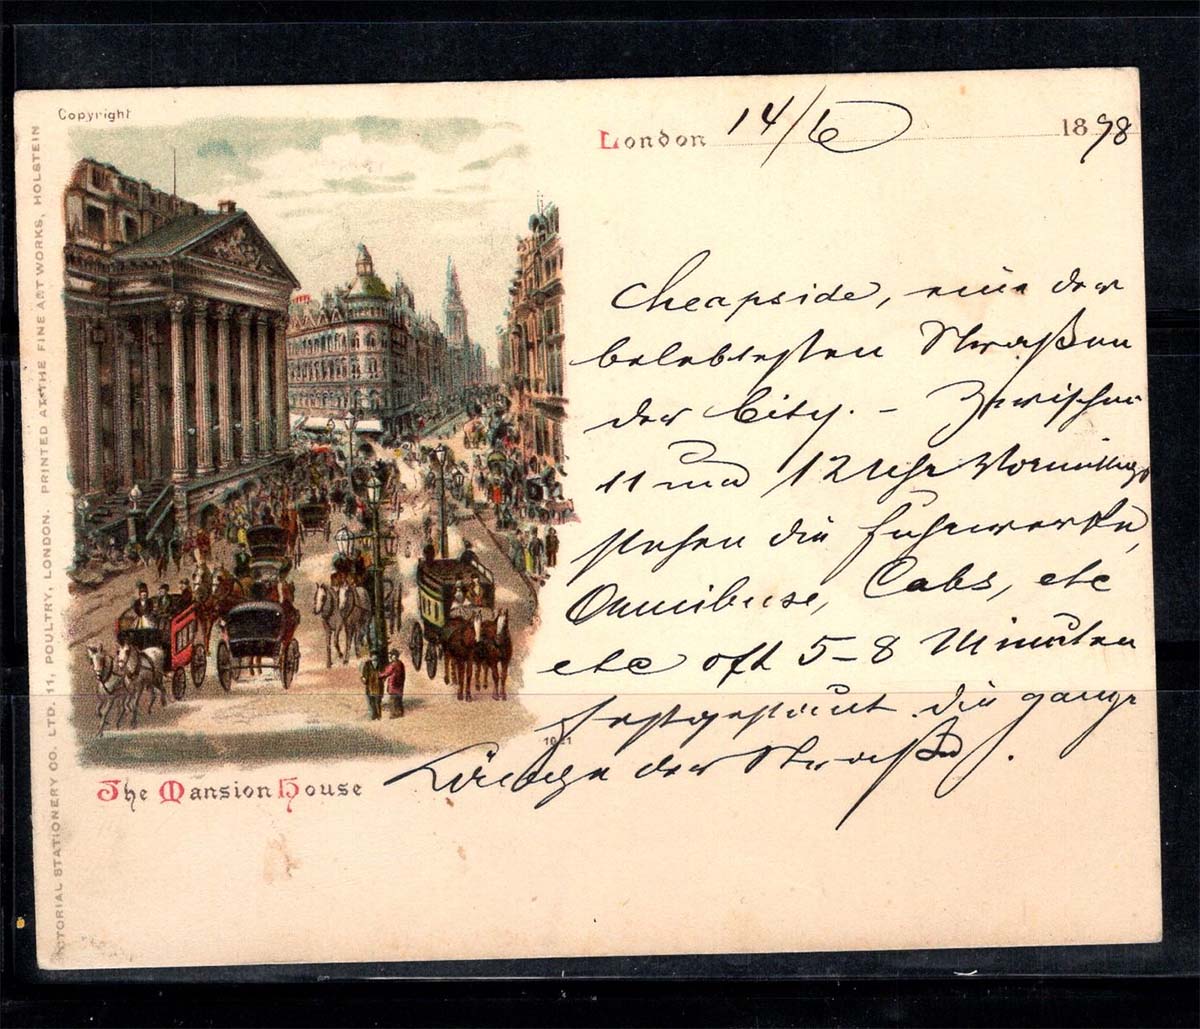 Copyright
London 14/6 1898
Cheapside, eine der
belebtesten Straßen
der City. – Zwischen
11 und 12 Uhr Vormittags
stehen die Fuhrwerke,
Omnibuse, Cabs, etc
etc oft 5–8 Minuten
festgestaut die ganze
Länge der Straße.
The Mansion House
CTORIAL STATIONERY CO. LTD. 11, POULTRY, LONDON. PRINTED AT THE FINE ART WORKS, HOLSTEIN